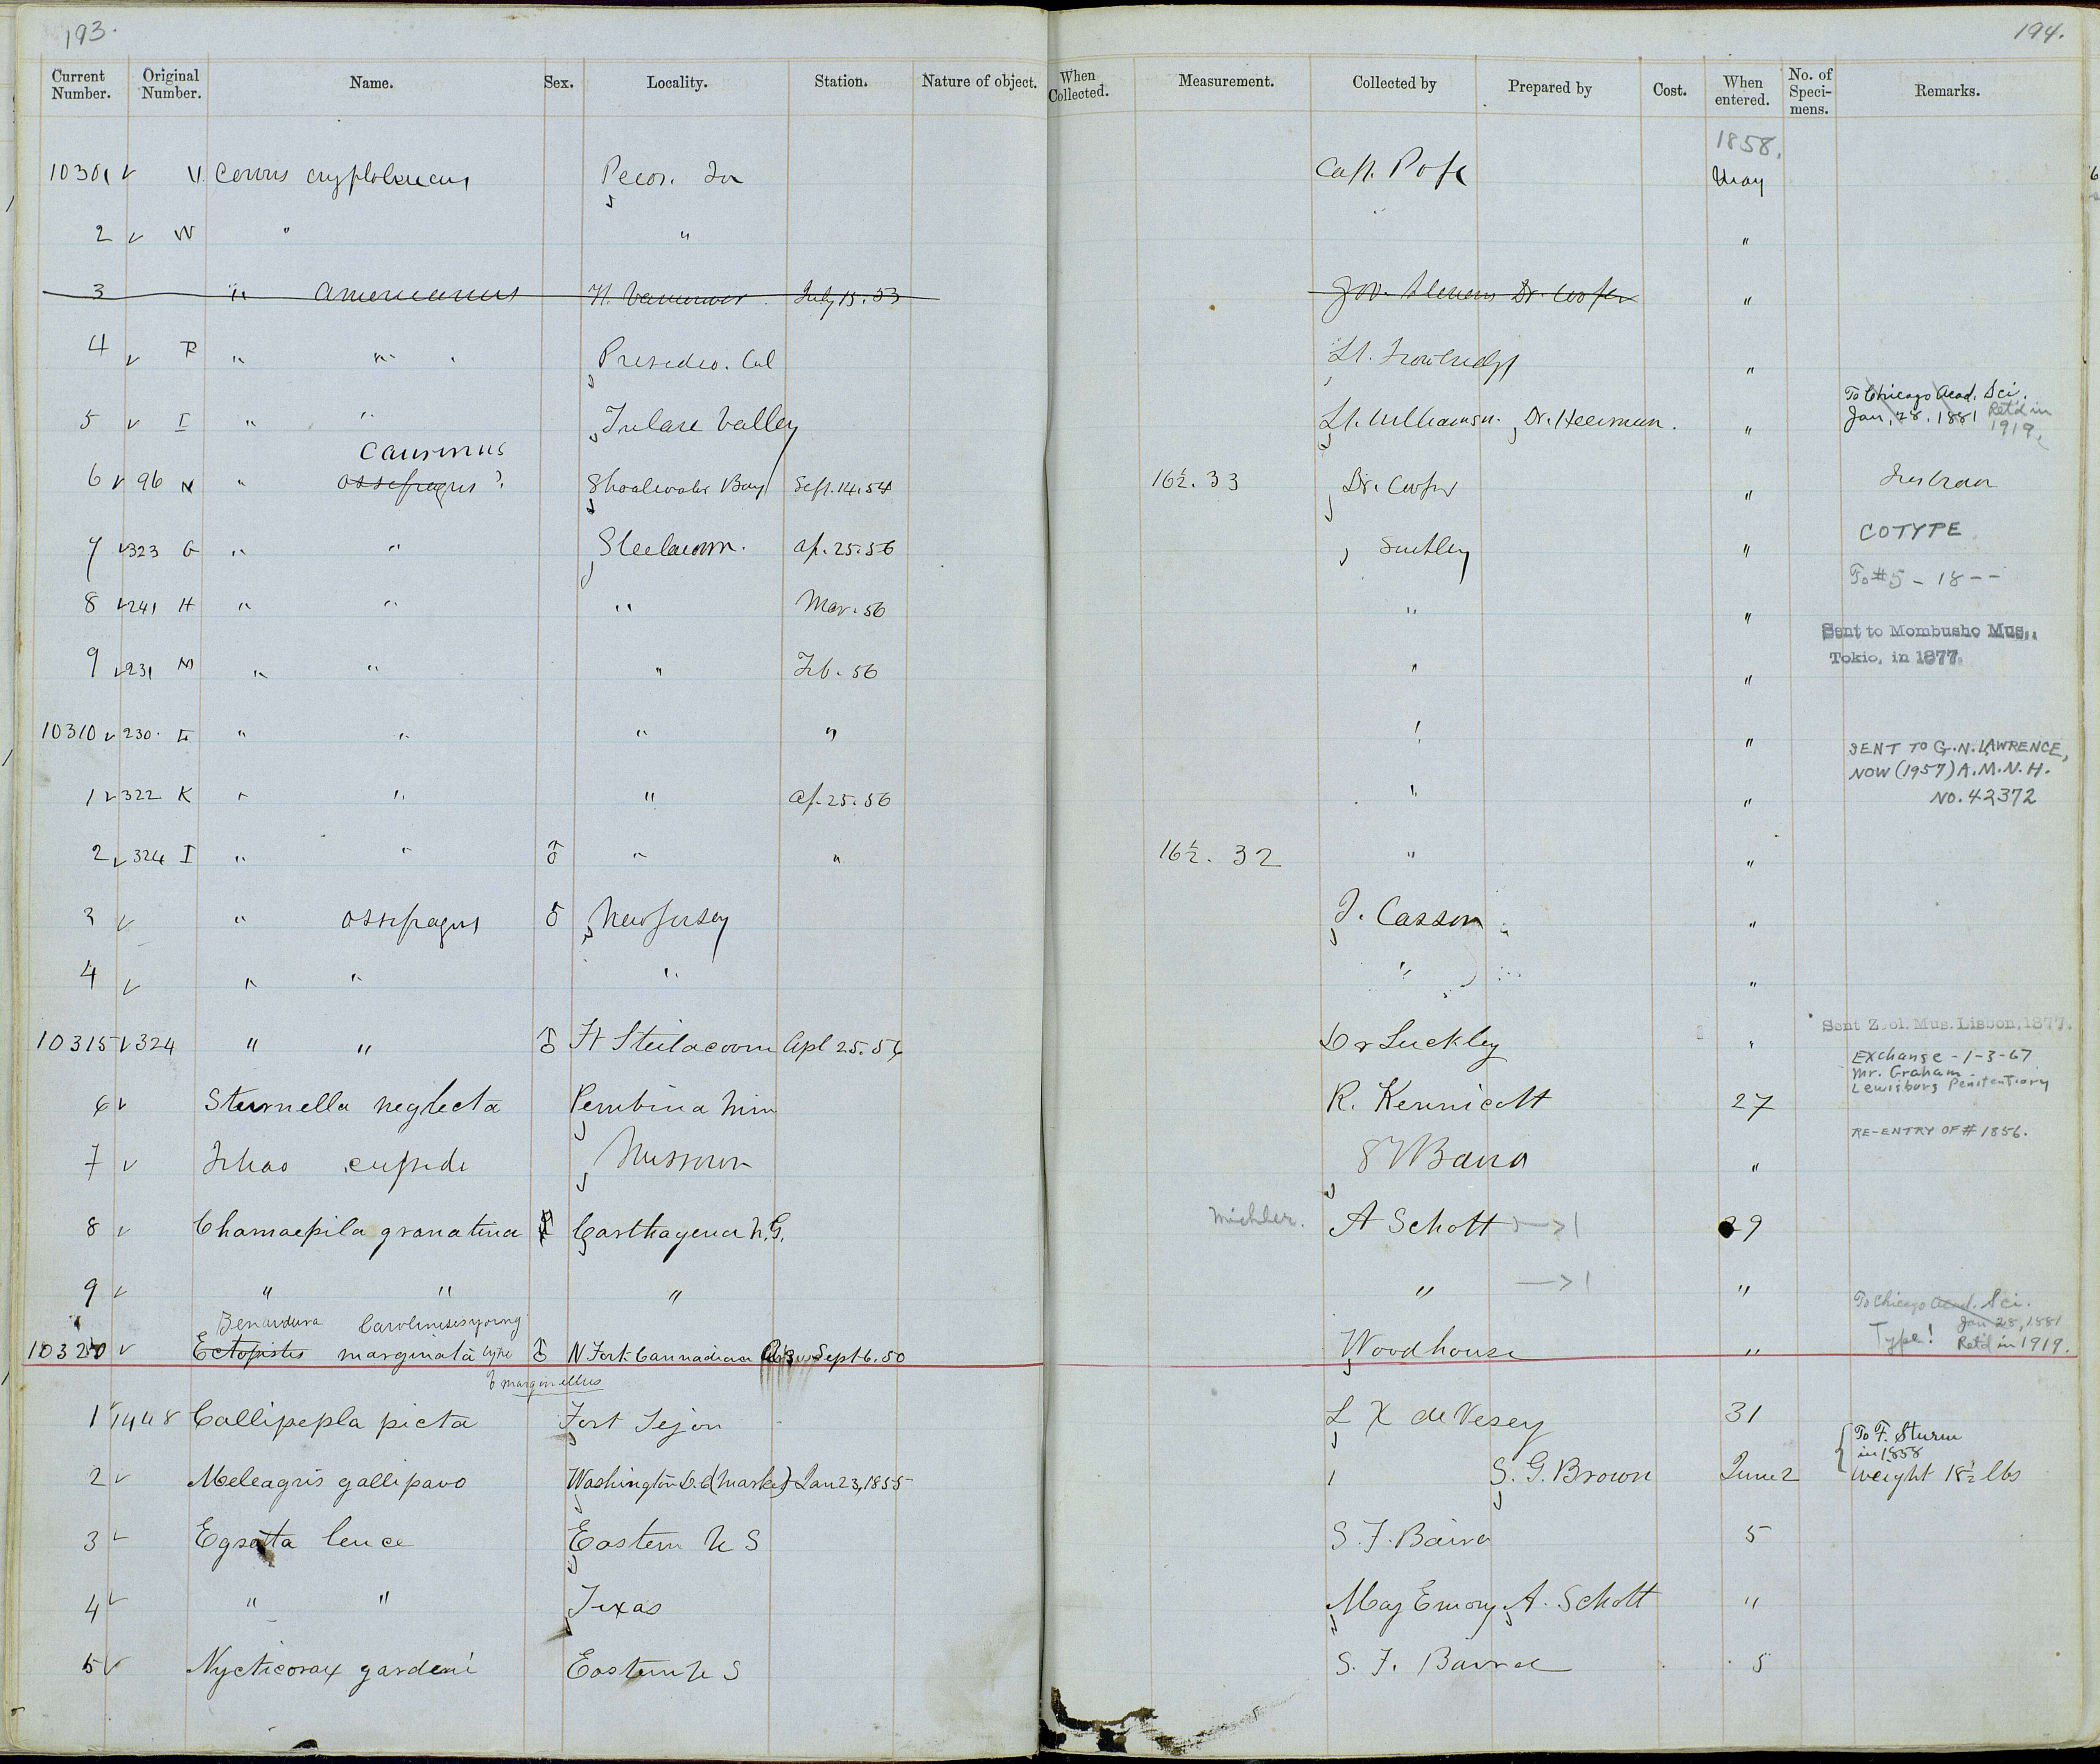 193.
194.
Current Number. Original Number. Name. Sex. Locality. Station. Nature of object. When Collected. Measurement. Collected by Prepared by Cost. When entered. No. of Speci- mens. Remarks.
1858.
10301 ✓ Corvus cryptoleucus Pecos. Capt. Pope May
2 ✓ " " "
3 " americanus Ft. Vancouver July 15. 53 Gov. Stevens Dr. Cooper "
4 ✓ " " Presidio. Cal Lt. Trowbridge "
To Chicago Acad. Sci.
5 ✓ I " " Tulare Valley Lt. Williamson. Dr. Heerman. " Jan. 28. 1881 Ret'd in 1919.
caurinus
6 ✓ 96 N " ossifragus? Shoalwater Bay Sept. 14. 54 16½. 33 Dr. Cooper "
COTYPE
7 ✓ 323 G " " Steilacoom. Ap. 25. 56 Suckley "
To #5 - 18 --
8 ✓ 241 H " " " Mar. 56 " "
Sent to Mombusho Mus.,
Tokio, in 1877.
9 ✓ 231 M " " " Feb. 56 " "
10310 ✓ 230. " " " " "
SENT TO G. N. LAWRENCE,
NOW (1957) A.M.N.H.
NO. 42372
1 ✓ 322 K " " " Ap. 25. 56 " "
2 ✓ 324 I " " ♂ " " 16½. 32 " "
3 ✓ " ossifragus ♂ New Jersey J. Cassin "
4 ✓ " " " " "
Sent Zool. Mus. Lisbon, 1877.
10315 ✓ 324 " " ♂ Ft Steilacoom Apl 25. 56 Dr Suckley "
Exchange - 1-3-67
Mr. Graham
Lewisburg Penitentiary
6 ✓ Sturnella neglecta Pembina Min R. Kennicott 27
RE-ENTRY OF # 1856.
7 ✓ cupido Missouri S F Baird "
8 ✓ Chamaepelia granatina Carthagena N. G. Michler. A Schott → 1 29
9 ✓ " " " " → 1 "
To Chicago Acad. Sci.
Jan 28, 1881
Type! Ret'd in 1919.
Carolinensis young
10320 ✓ Ectopistes marginata type ♂ N Fork Cannadian River Sept 6. 50 Woodhouse "
marginellus
1 ✓ 1448 Callipepla picta Fort Tejon L X de Vesey 31
To F. Sturm
in 1858
2 ✓ Meleagris gallipavo Washington D.C (Market) Jan 23, 1855 S. G. Brown June 2 Weight 18½ lbs
3 ✓ Egretta leuce Eastern U S S. F. Baird 5
4 ✓ " " Texas Maj Emory A. Schott "
5 ✓ Nycticorax gardeni Eastern U S S. F. Baird 5